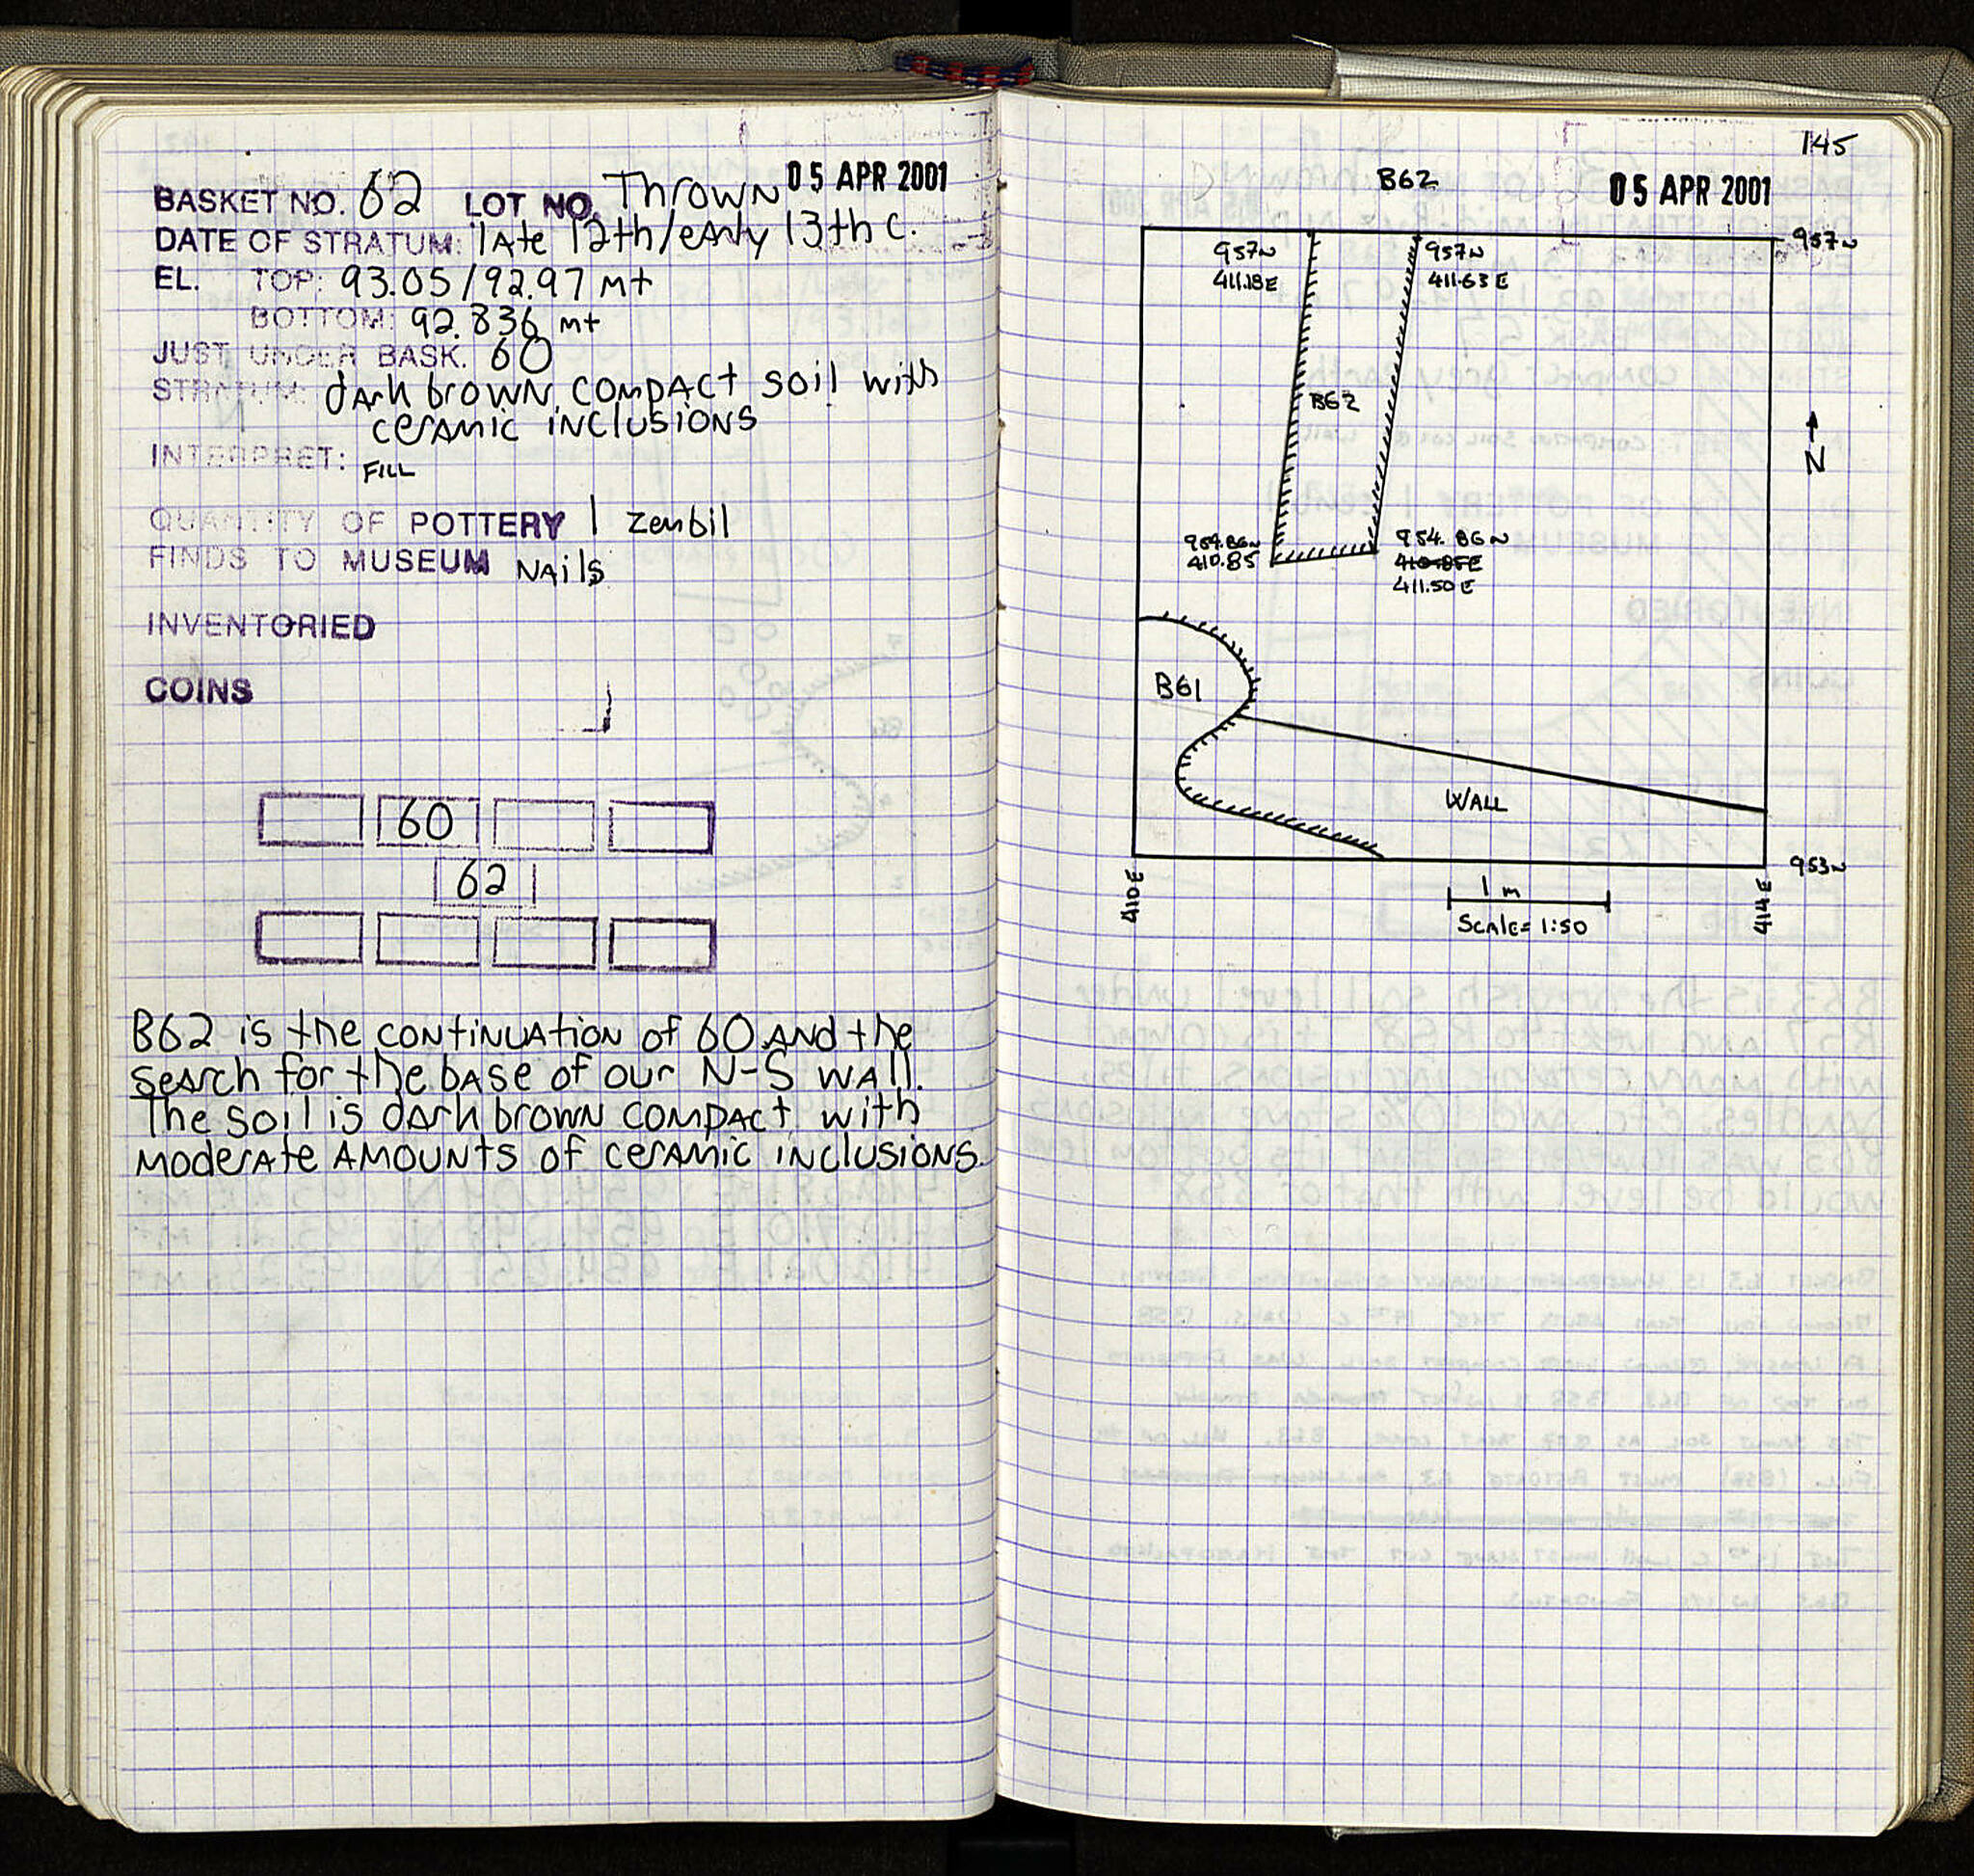 BASKET NO. 62 LOT NO. Thrown 05 APR 2001
DATE OF STRATUM: late 12th/early 13th c.
EL. TOP: 93.05/92.97 mt
BOTTOM: 92.836 mt
JUST UNDER BASK. 60
STRATUM: dark brown compact soil with
ceramic inclusions
INTERPRET: FILL
QUANTITY OF POTTERY 1 zembil
FINDS TO MUSEUM Nails
INVENTORIED
COINS
60
62
B62 is the continuation of 60 and the
search for the base of our N-S wall.
The soil is dark brown compact with
moderate amounts of ceramic inclusions.
145
B62 05 APR 2001
957N
957N 957N
411.18E 411.63E
B62
N
954.86N 954.86N
410.85 410.85E
411.50E
B61
WALL
953N
410E 414E
1 m
Scale= 1:50